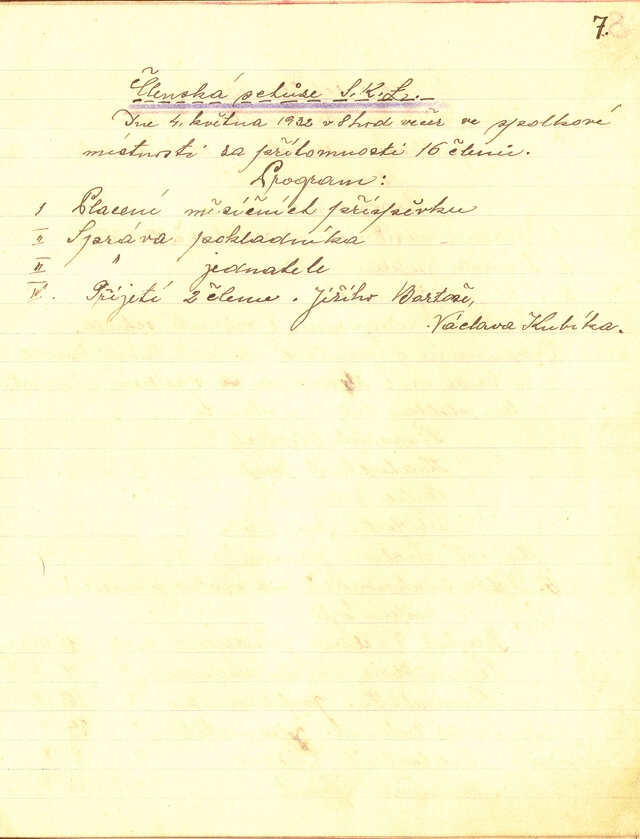 7.
Členská schůze S.K.Lr.
Dne 4. května 1932 v 8 hod večer ve spolkové
místnosti za přítomnosti 16 členů.
Program:
I Placení měsíčních příspěvku
II Správa pokladníka
III " jednatele
IV. Přijetí 2 členu. Jiřího Bartoše,
Václava Kubíka.